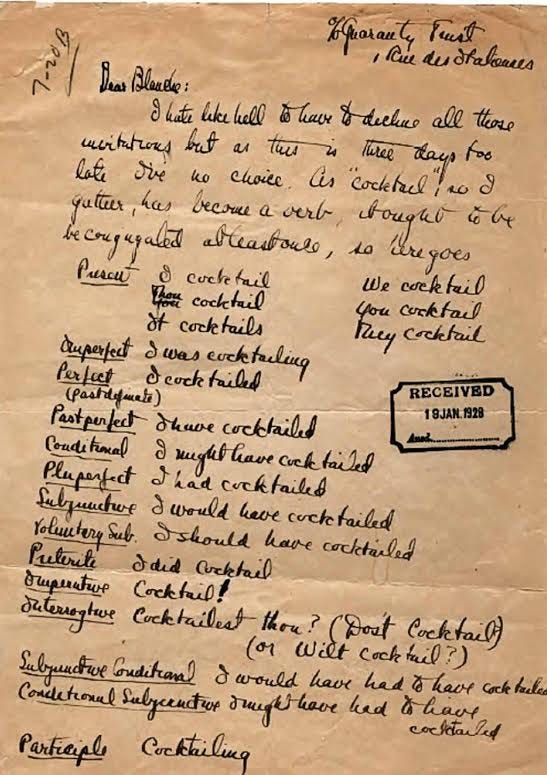 7-20B
c/o Guaranty Trust
1 Rue des Italiennes
Dear Blanche:
I hate like hell to have to decline all those
invitations but as this is three days too
late I've no choice. As "cocktail", so I
gather, has become a verb, it ought to be
be conjugated at least once, so here goes
Present I cocktail We cocktail
Thou cocktail You cocktail
It cocktails They cocktail
Imperfect I was cocktailing
Perfect I cocktailed
(past definate)
RECEIVED
19 JAN. 1928
Past perfect I have cocktailed
Conditional I might have cocktailed
Pluperfect I had cocktailed
Subjunctive I would have cocktailed
Voluntary Sub. I should have cocktailed
Preterite I did cocktail
Imperative Cocktail!
Interrogtive Cocktailest thou? (Dos't Cocktail)
(or Wilt cocktail?)
Subjunctive Conditional I would have had to have cocktailed
Conditional Subjunctive I might have had to have
cocktailed
Participle Cocktailing